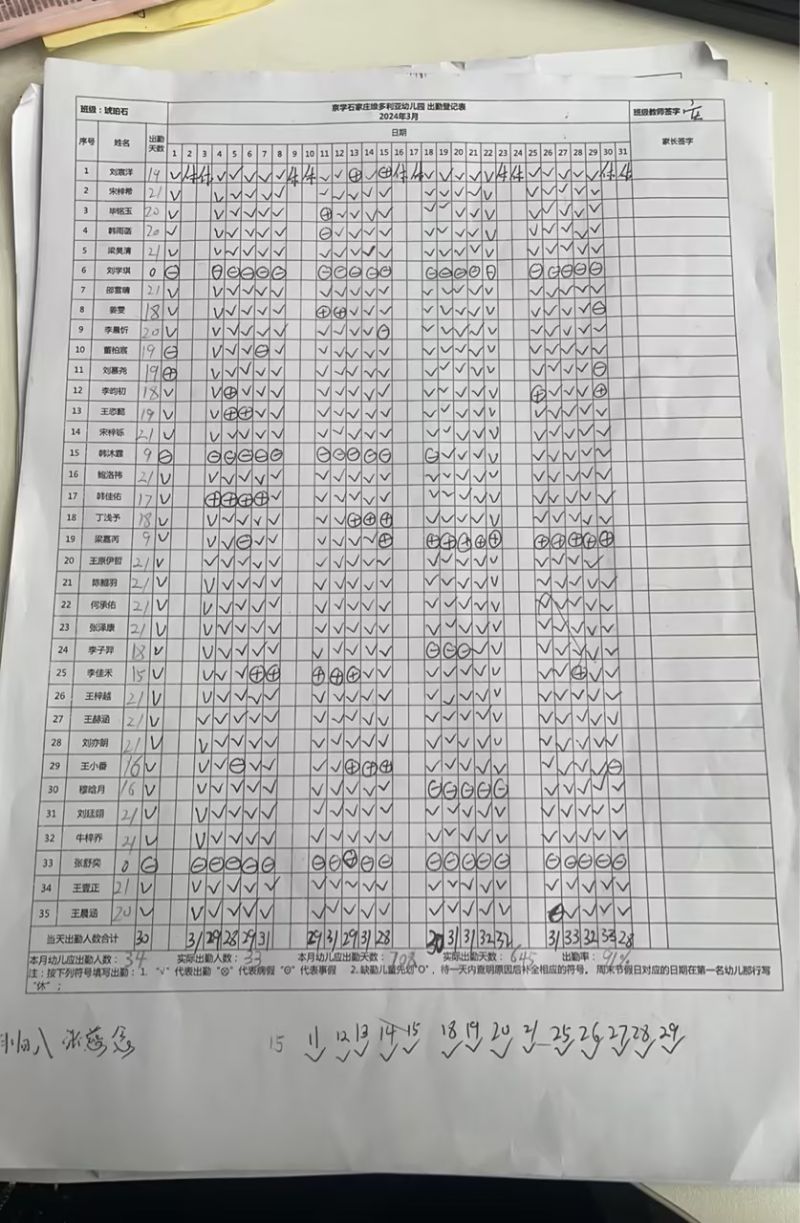 京学石家庄维多利亚幼儿园 出勤登记表
班级：琥珀石 2024年3月 班级教师签字：
序号 姓名 出勤天数 日期 家长签字
1 2 3 4 5 6 7 8 9 10 11 12 13 14 15 16 17 18 19 20 21 22 23 24 25 26 27 28 29 30 31
1 刘宸洋 19 √ 休 休 √ √ √ √ √ 休 休 √ √ ⊕ √ ⊕ 休 休 √ √ √ √ √ 休 休 √ √ √ √ √ 休 休
2 宋梓希 21 √ √ √ √ √ √ √ √ √ √ √ √ √ √ √ √ √ √ √ √ √
3 毕铭玉 20 √ √ √ √ √ √ ⊕ √ √ √ √ √ √ √ √ √ √ √ √ √ √
4 韩雨菡 20 √ √ √ √ √ √ ⊖ √ √ √ √ √ √ √ √ √ √ √ √ √ √
5 梁昊清 21 √ √ √ √ √ √ √ √ √ √ √ √ √ √ √ √ √ √ √ √ √
6 刘学琪 0
7 邵雪晴 21 √ √ √ √ √ √ √ √ √ √ √ √ √ √ √ √ √ √ √ √ √
8 姜雯 18 √ √ √ √ √ √ ⊕ ⊕ √ √ √ √ √ √ √ √ √ √ √ √ ⊖
9 李晨忻 20 √ √ √ √ √ √ √ √ √ √ ⊖ √ √ √ √ √ √ √ √ √ √
10 董柏宸 19 ⊖ √ √ √ ⊖ √ √ √ √ √ √ √ √ √ √ √ √ √ √ √ √
11 刘慕尧 19 ⊕ √ √ √ √ √ √ √ √ √ √ √ √ √ √ √ √ √ √ √ ⊖
12 李昀初 18 √ √ ⊕ √ √ √ √ √ √ √ √ √ √ √ √ √ ⊕ √ √ √ ⊕
13 王恋懿 19 √ √ ⊕ ⊕ √ √ √ √ √ √ √ √ √ √ √ √ √ √ √ √ √
14 宋梓铄 21 √ √ √ √ √ √ √ √ √ √ √ √ √ √ √ √ √ √ √ √ √
15 韩沐霖 9 ⊖ ⊖ ⊖ ⊖ ⊖ ⊖ ⊖ ⊖ ⊖ ⊖ ⊖ ⊖ √ √ √ √ √ √ √ √ √
16 鲍洛祎 21 √ √ √ √ √ √ √ √ √ √ √ √ √ √ √ √ √ √ √ √ √
17 韩佳佑 17 √ ⊕ ⊕ ⊕ ⊕ √ √ √ √ √ √ √ √ √ √ √ √ √ √ √ √
18 丁浅予 18 √ √ √ √ √ √ √ √ ⊕ ⊕ ⊕ √ √ √ √ √ √ √ √ √ √
19 梁嘉芮 9 √ √ √ ⊖ √ √ √ √ √ √ ⊕ ⊕ ⊕ ⊕ ⊕ ⊕ ⊕ ⊕ ⊕ ⊕ ⊕
20 王原伊哲 21 √ √ √ √ √ √ √ √ √ √ √ √ √ √ √ √ √ √ √ √
21 陈翰羽 21 √ √ √ √ √ √ √ √ √ √ √ √ √ √ √ √ √ √ √ √ √
22 何承佑 21 √ √ √ √ √ √ √ √ √ √ √ √ √ √ √ √ √ √ √ √
23 张泽康 21 √ √ √ √ √ √ √ √ √ √ √ √ √ √ √ √ √ √ √ √ √
24 李子羿 18 √ √ √ √ √ √ √ √ √ √ √ ⊖ ⊖ ⊖ √ √ √ √ √ √ √
25 李佳禾 15 √ √ √ √ ⊕ ⊕ ⊕ ⊕ ⊕ √ √ √ √ √ √ √ √ √ ⊕ √ √
26 王梓越 21 √ √ √ √ √ √ √ √ √ √ √ √ √ √ √ √ √ √ √ √ √
27 王赫涵 21 √ √ √ √ √ √ √ √ √ √ √ √ √ √ √ √ √ √ √ √ √
28 刘亦朗 21 √ √ √ √ √ √ √ √ √ √ √ √ √ √ √ √ √ √ √ √ √
29 王小番 16 √ √ √ ⊖ √ √ √ √ ⊕ ⊕ ⊕ √ √ √ √ √ √ √ √ √ ⊖
30 穆晗月 16 √ √ √ √ √ √ √ √ √ √ √ ⊖ ⊖ ⊖ ⊖ ⊖ √ √ √ √ √
31 刘廷翊 21 √ √ √ √ √ √ √ √ √ √ √ √ √ √ √ √ √ √ √ √ √
32 牛梓乔 21 √ √ √ √ √ √ √ √ √ √ √ √ √ √ √ √ √ √ √ √ √
33 张舒奕 0
34 王壹正 21 √ √ √ √ √ √ √ √ √ √ √ √ √ √ √ √ √ √ √ √ √
35 王晨涵 20 √ √ √ √ √ √ √ √ √ √ √ √ √ √ √ √ √ √ √ √
当天出勤人数合计 30 31 29 28 29 31 29 31 29 31 28 30 31 31 32 32 31 33 32 33 28
本月幼儿应出勤人数： 34 实际出勤人数： 33 本月幼儿应出勤天数： 708 实际出勤天数： 645 出勤率： 91%
注：按下列符号填写出勤：1. "√" 代表出勤 "⊗" 代表病假 "Θ" 代表事假 2.缺勤儿童先划"O"，待一天内查明原因后补全相应的符号。 周末节假日对应的日期在第一名幼儿那行写
"休"；
15 11 12 13 14 15 18 19 20 21 25 26 27 28 29